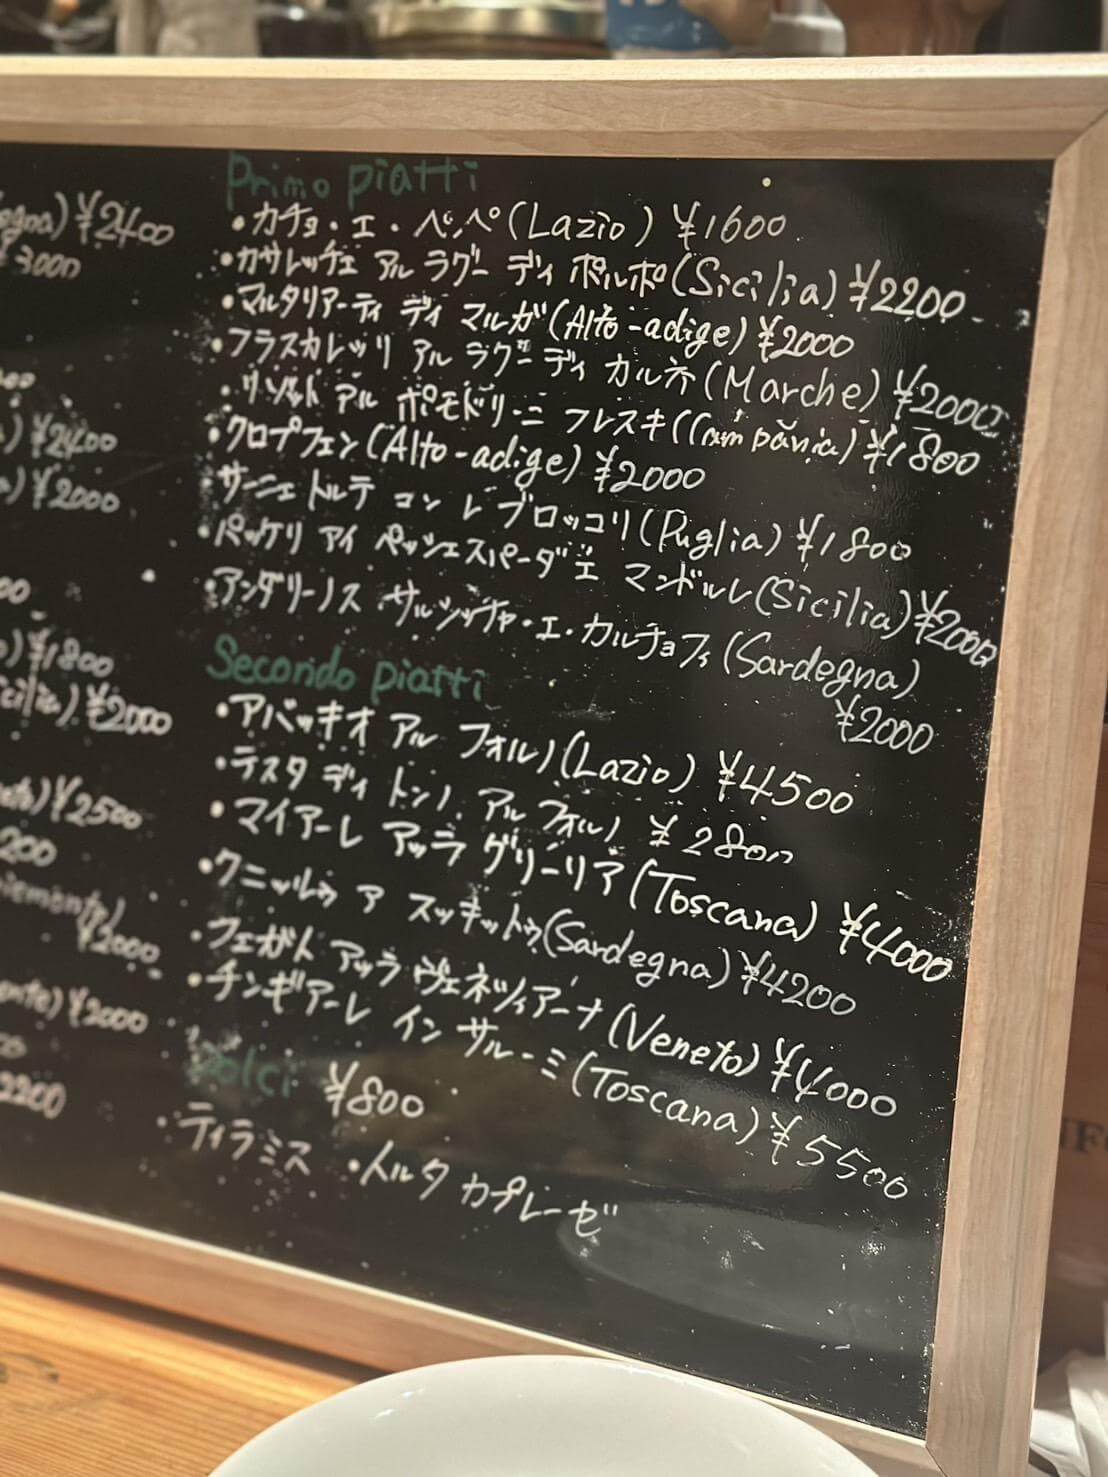 Primo piatti
・カチョ・エ・ペッペ(Lazio) ¥1600
・カサレッチェ アル ラグー ディ ポルポ(Sicilia) ¥2200
・マルタリアーティ ディ マルガ(Alto-adige) ¥2000
・フラスカレッリ アル ラグー ディ カルネ(Marche) ¥2000
・リゾット アル ポモドリーニ フレスキ(Campania) ¥1800
・クロプフェン(Alto-adige) ¥2000
・サーニェ トルテ コン レ ブロッコリ(Puglia) ¥1800
・パッケリ アイ ペッシェスパーダ エ マンドルレ(Sicilia) ¥2000
・アンダリーノス サルシッチャ・エ・カルチョフィ(Sardegna)
¥2000
Secondo piatti
・アバッキオ アル フォルノ(Lazio) ¥4500
・テスタ ディ トンノ アル フォルノ ¥2800
・マイアーレ アッラ グリーリア(Toscana) ¥4000
・クニッルゥ ア スッキットゥ(Sardegna) ¥4200
・フェガト アッラ ヴェネツィアーナ(Veneto) ¥4000
・チンギアーレ イン サルーミ(Toscana) ¥5500
Dolci ¥800
・ティラミス ・トルタ カプレーゼ
¥2400
¥3000
¥2400
¥2000
¥1800
¥2000
¥2500
200
¥2000
¥2000
2200